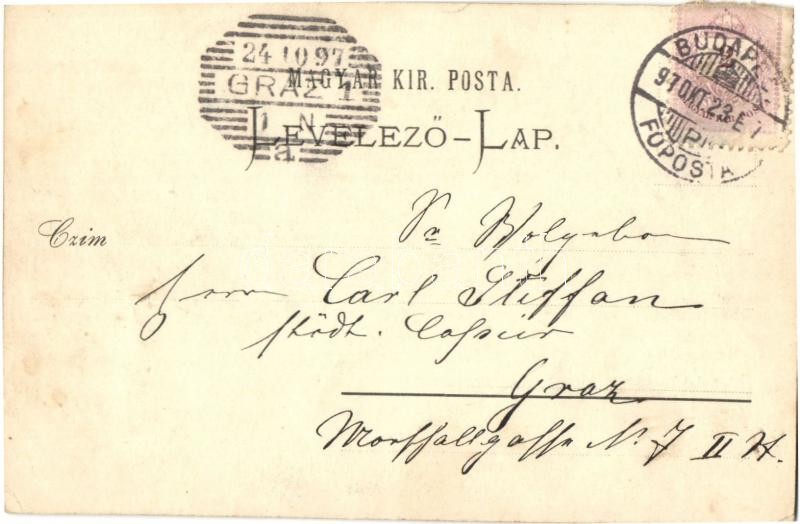 24 10 97
GRAZ 1
1 N
a
MAGYAR KIR. POSTA.
LEVELEZŐ-LAP.
BUDAPE
97 OKT. 23. E
FŐPOSTA
Czim
Sr Wolgebor
Herrn Carl Steffan
städt. Cassier
Graz
N. 7 II St.